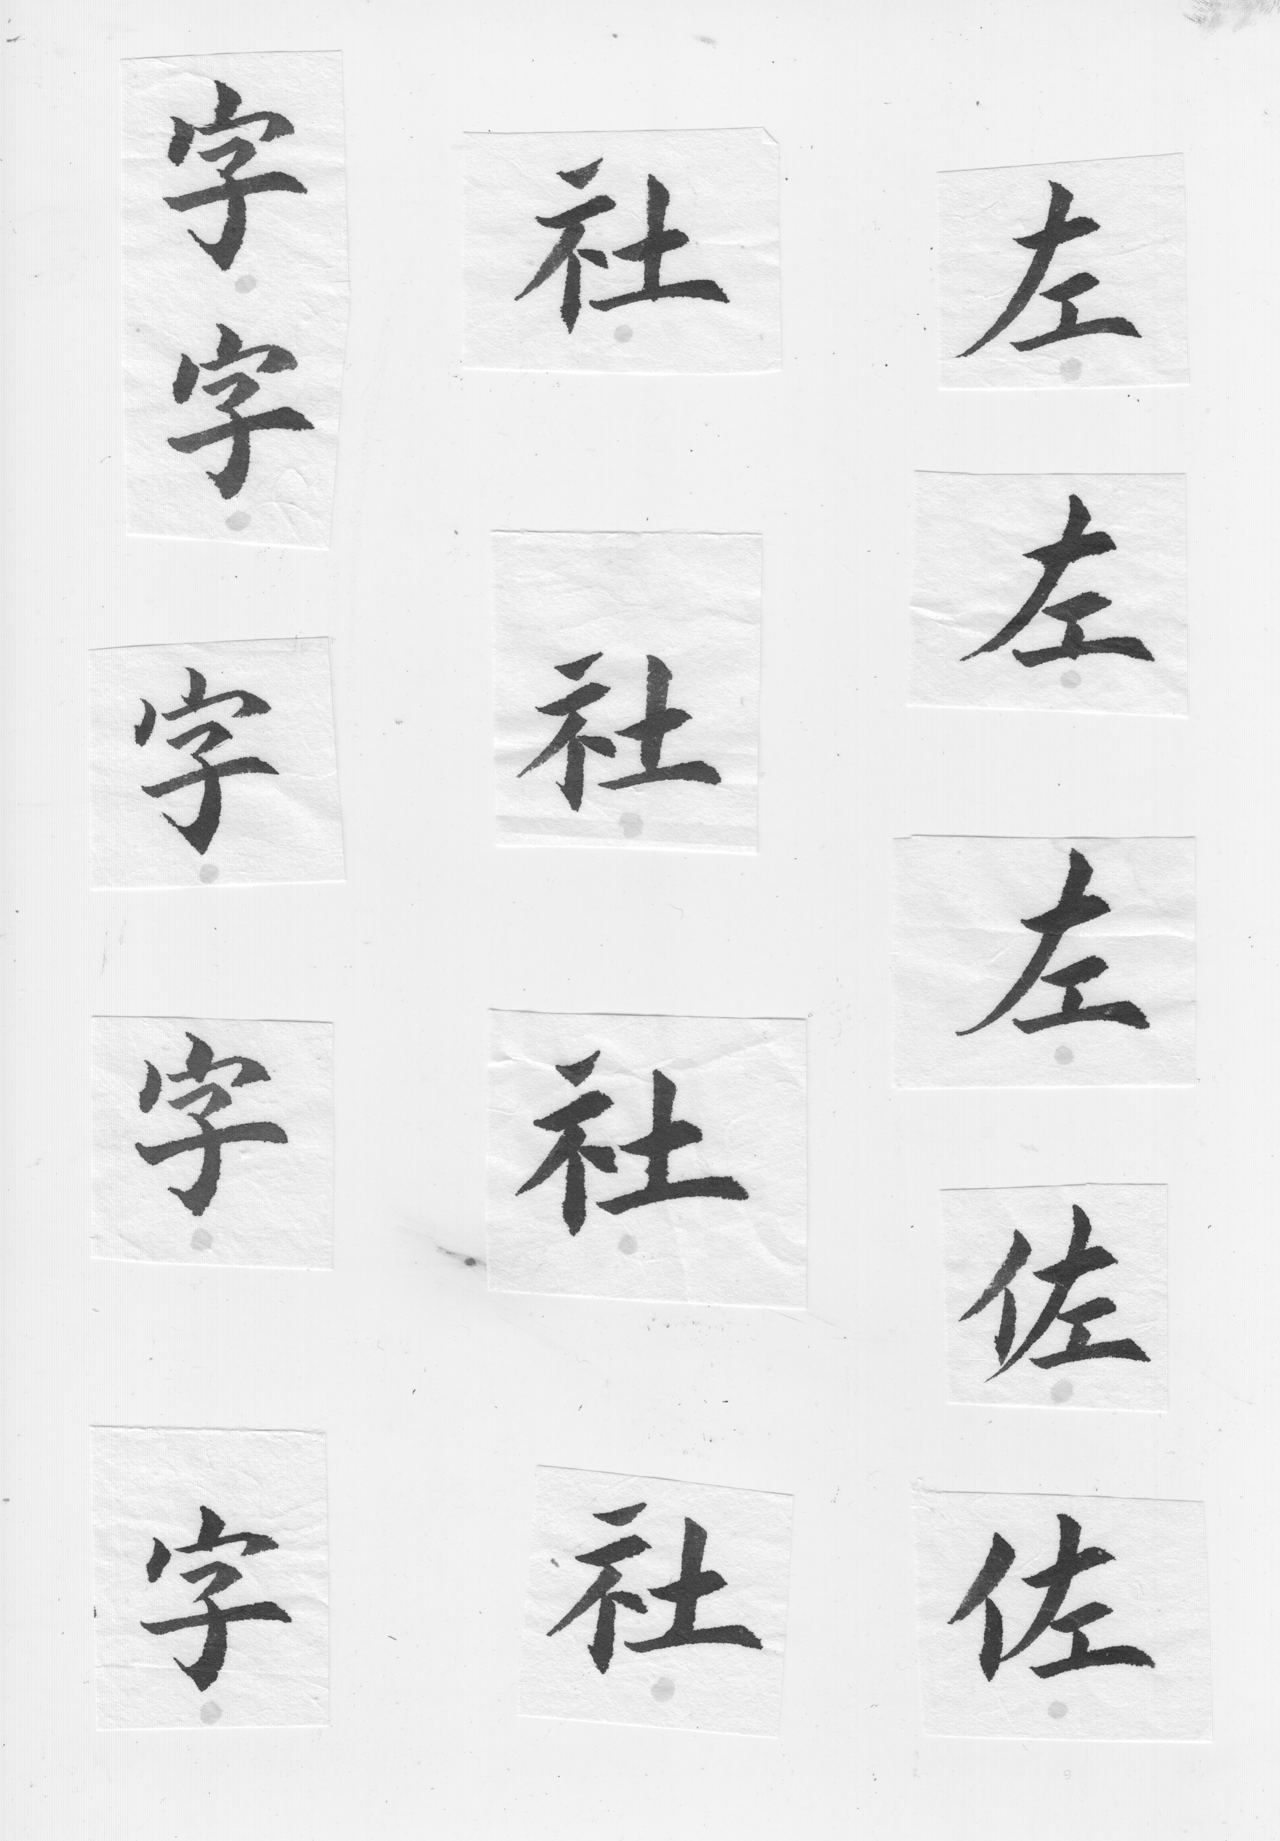 左
左
左
佐
佐
社
社
社
社
字
字
字
字
字